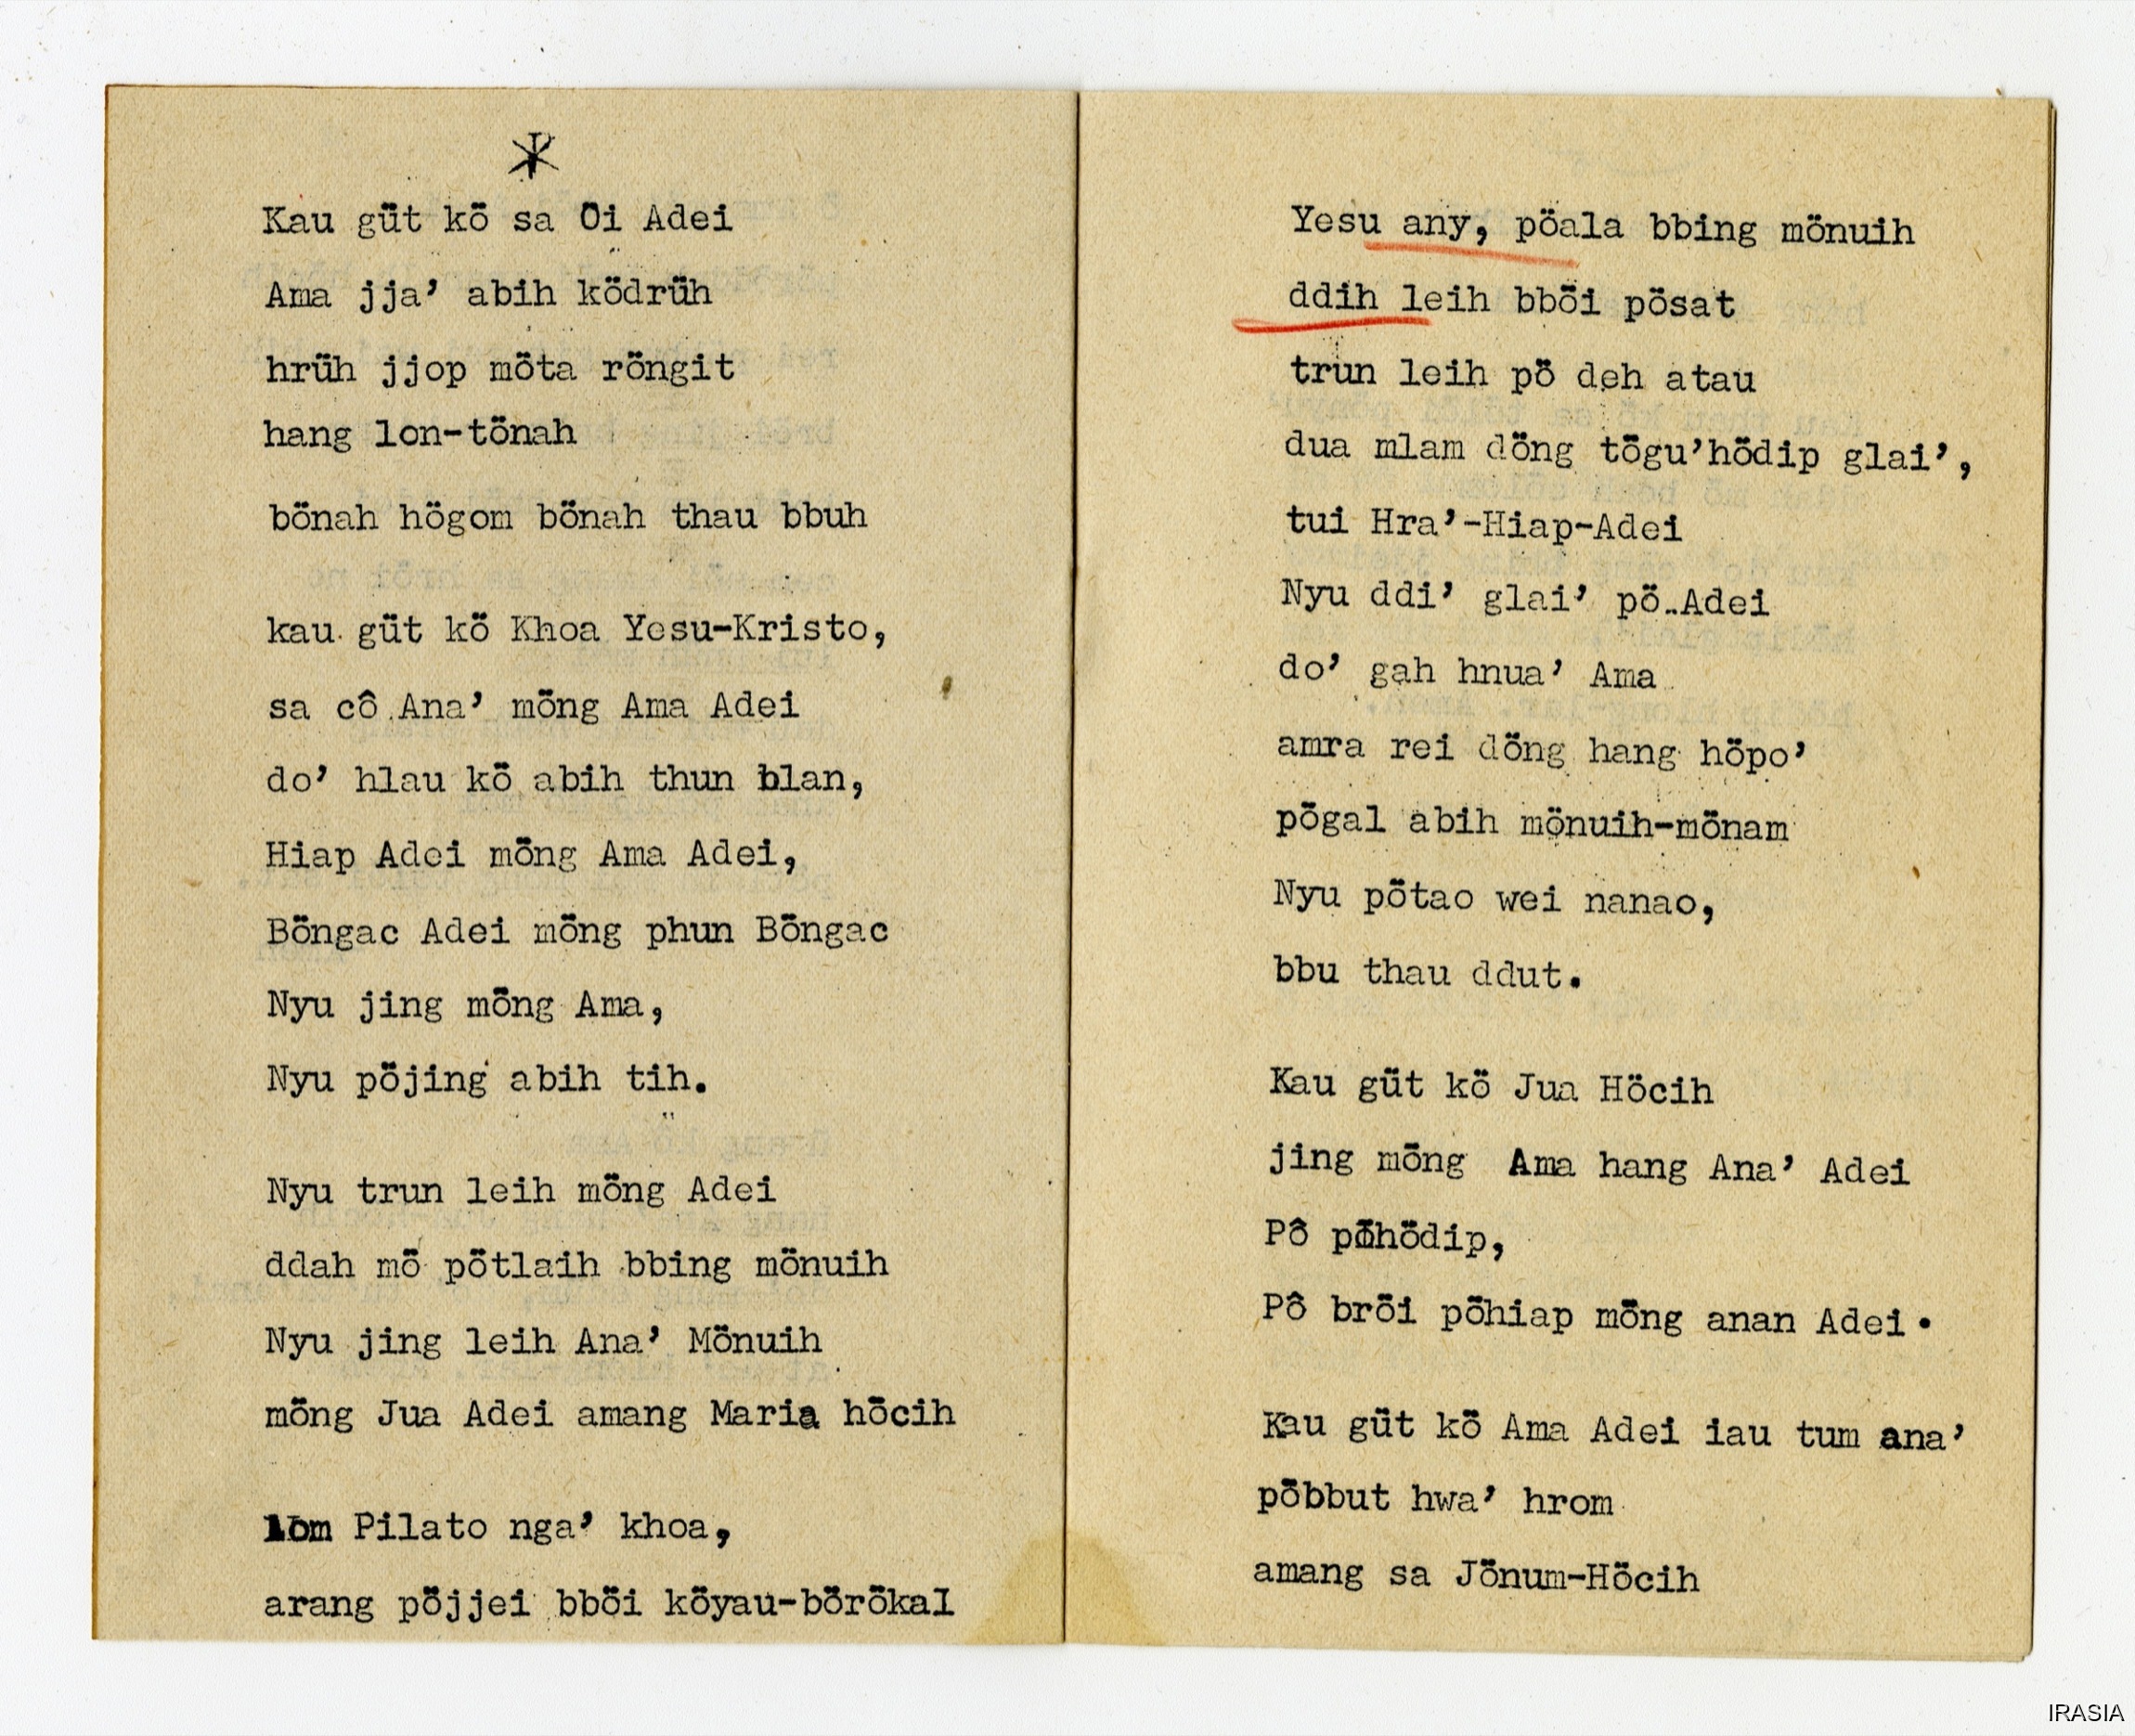 Kau güt kö sa Oi Adei
Ama jja’ abih ködrüh
hrüh jjop möta röngit
hang lon-tönah
bönah högom bönah thau bbuh
kau güt kö Khoa Yesu-Kristo,
sa cô Ana’ möng Ama Adei
do’ hlau kö abih thun blan,
Hiap Adei möng Ama Adei,
Böngac Adei möng phun Böngac
Nyu jing möng Ama,
Nyu pöjing abih tih.
Nyu trun leih möng Adei
ddah mö pötlaih bbing mönuih
Nyu jing leih Ana’ Mönuih
möng Jua Adei amang Maria höcih
löm Pilato nga’ khoa,
arang pöjjei bböi köyau-börökal
Yesu any, pöala bbing mönuih
ddih leih bböi pösat
trun leih pö deh atau
dua mlam döng tögu’hödip glai’,
tui Hra’-Hiap-Adei
Nyu ddi’ glai’ pö Adei
do’ gah hnua’ Ama
amra rei döng hang höpo’
pögal abih mönuih-mönam
Nyu pötao wei nanao,
bbu thau ddut.
Kau güt kö Jua Höcih
jing möng Ama hang Ana’ Adei
Pô pöhödip,
Pô bröi pöhiap möng anan Adei.
Kau güt kö Ama Adei iau tum ana’
pöbbut hwa’ hrom
amang sa Jönum-Höcih
IRASIA